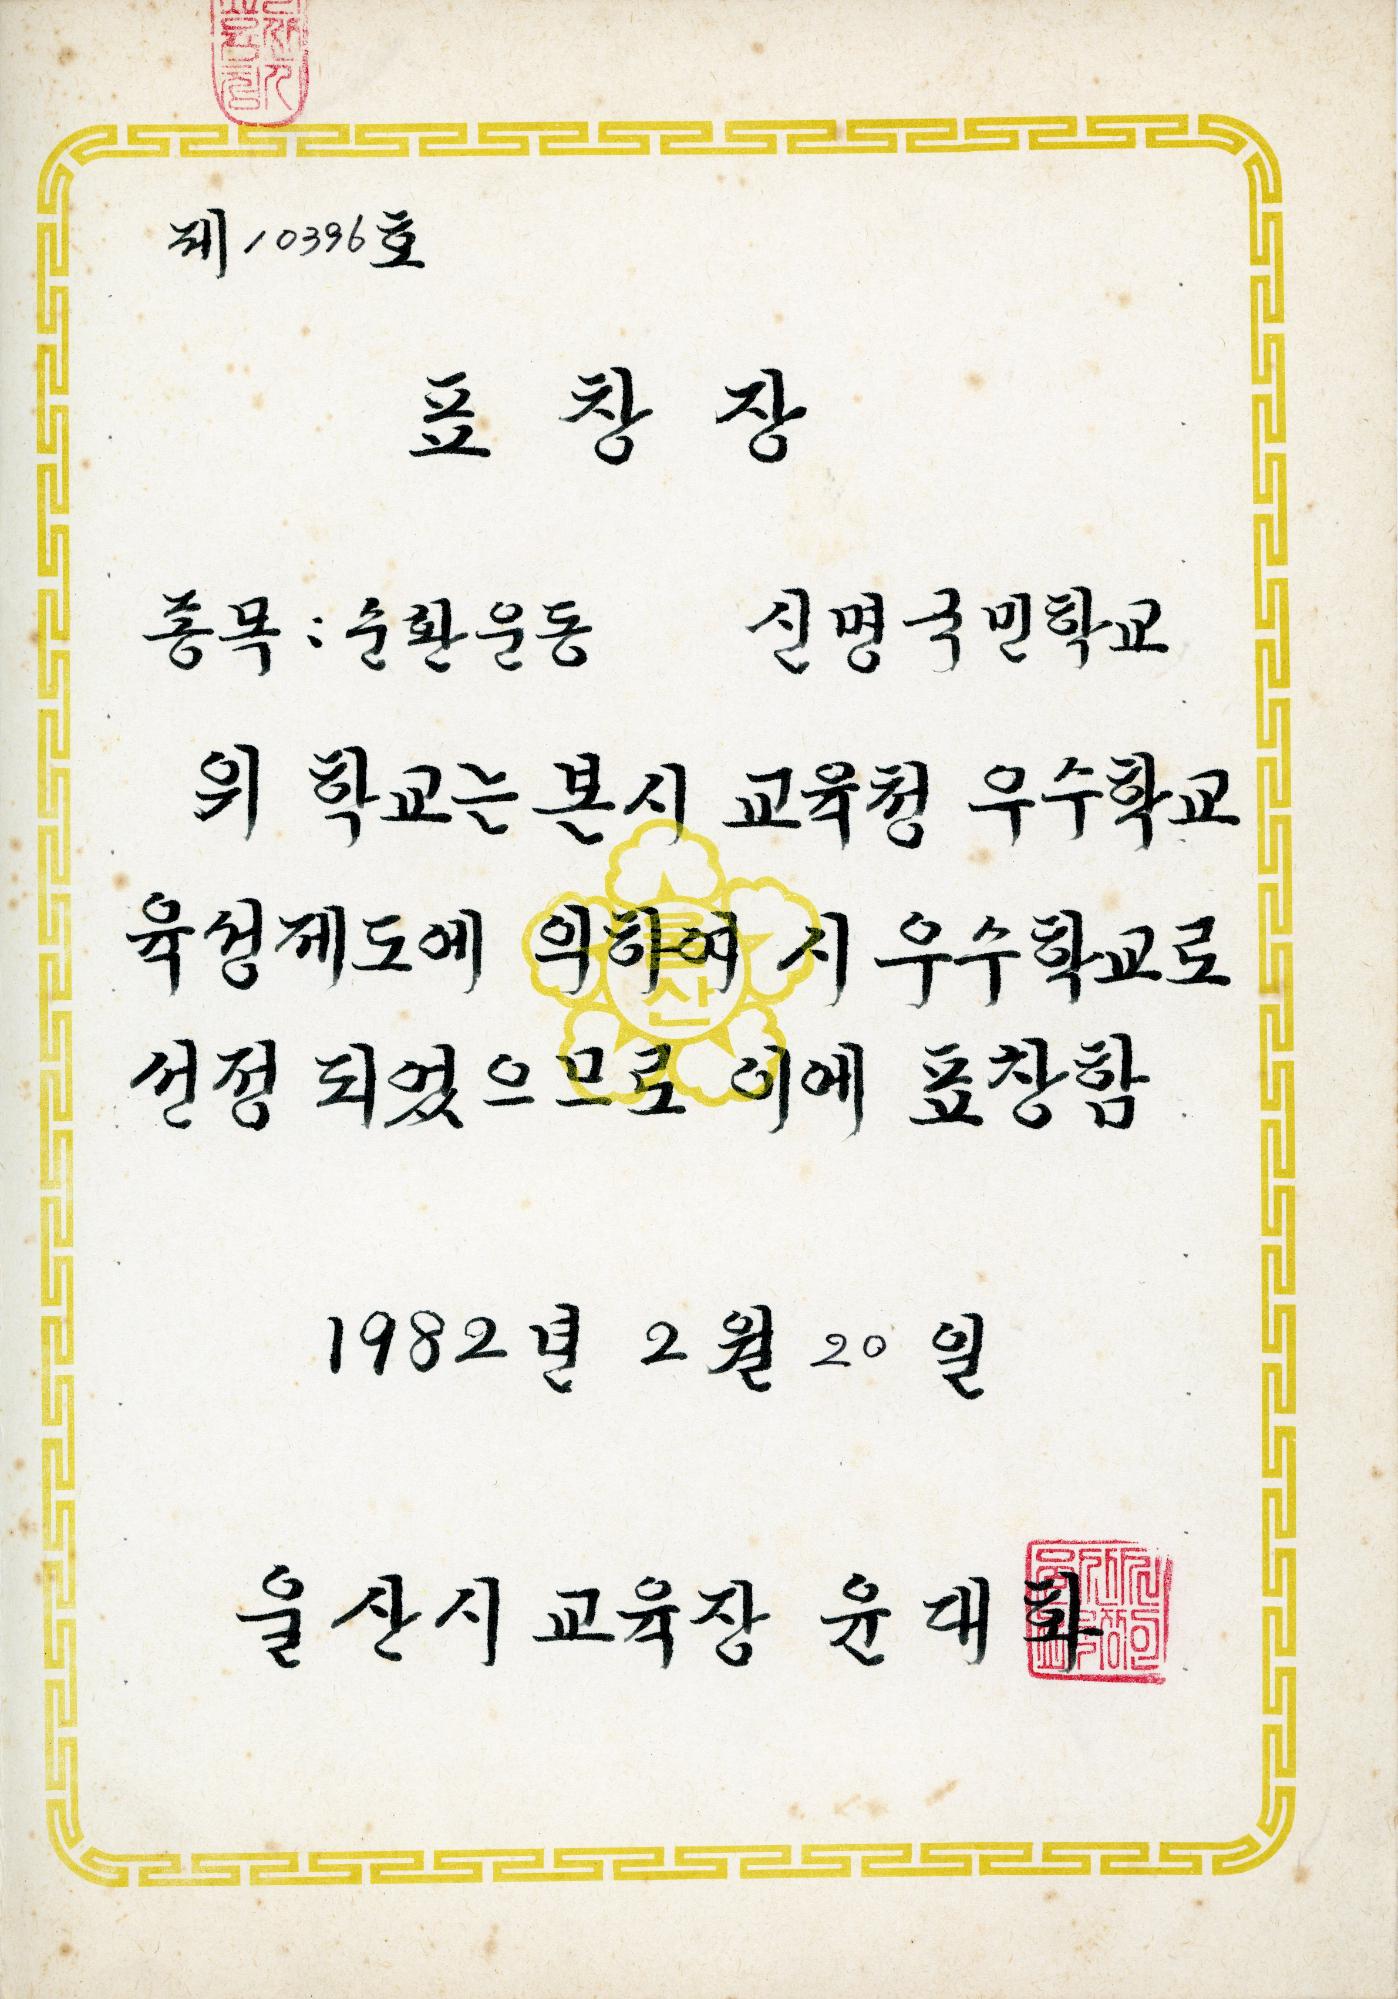 제10396호
표창장
종목:순환운동 신명국민학교
위 학교는 본시 교육청 우수학교
육성제도에 의하여 시 우수학교로
선정 되었으므로 이에 표창함
1982년 2월 20일
울산시 교육장 윤대화